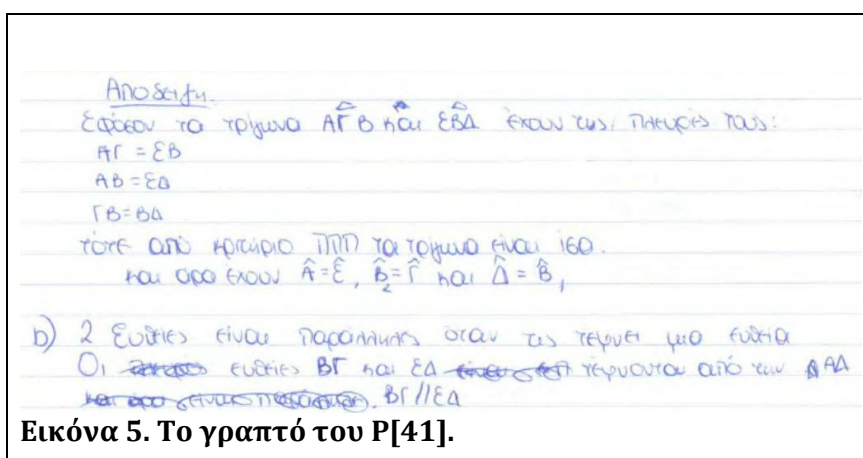 Απόδειξη.
Εφόσον τα τρίγωνα ΑΓΒ και ΕΒΔ έχουν τις πλευρές τους:
ΑΓ = ΕΒ
ΑΒ = ΕΔ
ΓΒ = ΒΔ
τότε από κριτήριο ΠΠΠ τα τρίγωνα είναι ίσα.
και άρα έχουν Â = Ε̂, Β̂₂ = Γ̂ και Δ̂ = Β̂₁
b) 2 Ευθείες είναι παράλληλες όταν τις τέμνει μια ευθεία
Οι ευθείες ΒΓ και ΕΔ τέμνονται από την ΑΔ
ΒΓ//ΕΔ
Εικόνα 5. Το γραπτό του Ρ[41].